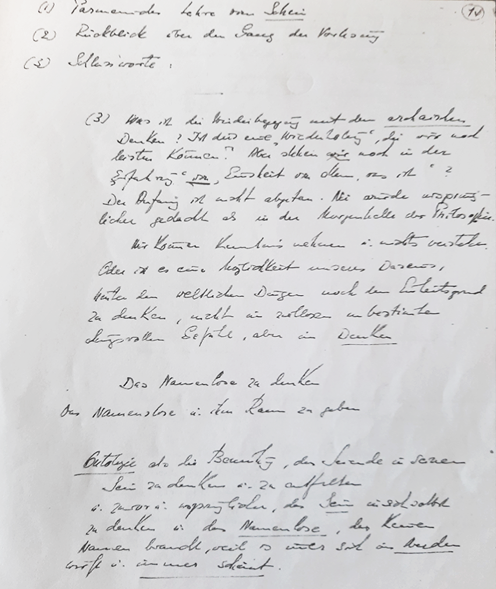 (1) Parmenides Lehre vom Schein
IV
(2) Rückblick über den Gang der Vorlesung
Schlussworte:
(3) Was ist die Wiederbegegnung mit dem archaischen
Denken? Ist das eine „Wiederholung", die wir noch
leisten können? Aber stehen wir noch in der
„Erfahrung" von „Einheit von dem, was ist"?
Der Anfang ist nicht abgetan. Nie wurde ursprüng-
licher gedacht als in der Morgenhelle der Philosophie.
Wir können Kenntnis nehmen u. nichts verstehen.
Oder ist es eine Möglichkeit unseres Daseins,
hinter den weltlichen Dingen noch den Einheitsgrund
zu denken, nicht im unbestimmten
Gefühl, aber im Denken
Das Namenlose zu denken
Das Namenlose u. ihm Raum zu geben
Ontologie als die Bemühung, das Seiende in seinem
Sein zu denken u. zu entfalten
u. zuvor u. ursprünglicher, das Sein
zu denken u. das Namenlose, das keinen
Namen braucht, weil es immer sich ins
wirft u. immer scheint.